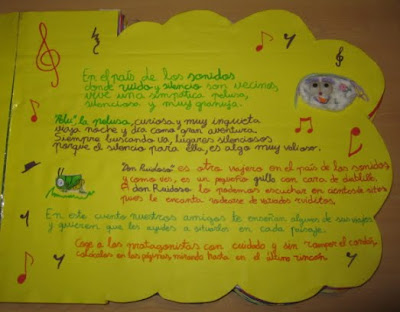 En el país de los sonidos
donde ruido y silencio son vecinos,
vive una simpática pelusa,
silenciosa y muy granuja.
la pelusa, curiosa y muy inquieta
viaja noche y día como gran aventura.
Siempre buscando va, lugares silenciosos
porque el silencio para ella, es algo muy valioso.
"Don Ruidoso" es otro viajero en el país de los sonidos
y como ves, es un pequeño grillo con cara de diablillo.
A don Ruidoso lo podemos escuchar en cientos de sitios
pues le encanta rodearse de variados ruiditos.
En este cuento nuestros amigos te enseñan algunos de sus viajes
y quieren que les ayudes a situarlos en cada paisaje.
Coge a los protagonistas con cuidado y sin romper el cordón,
colócalos en las páginas, mirando hasta en el último rincón.